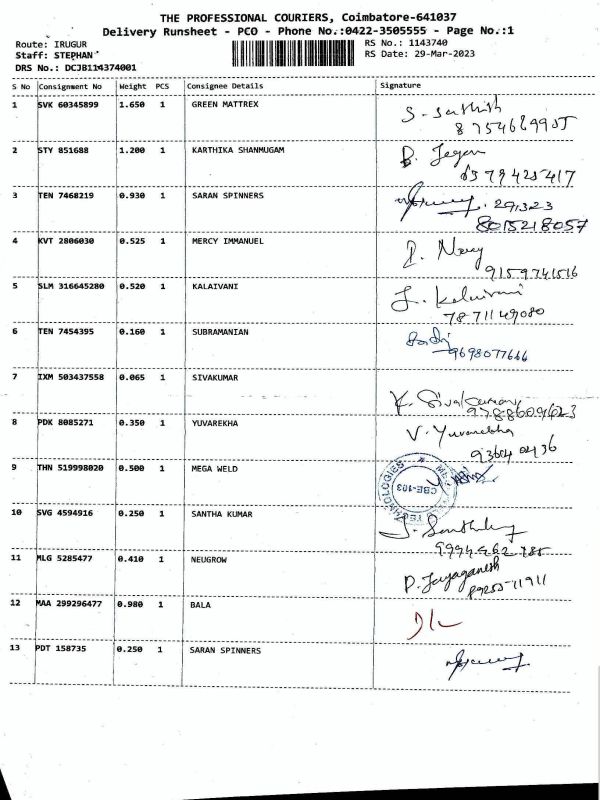 THE PROFESSIONAL COURIERS, Coimbatore-641037
Delivery Runsheet - PCO - Phone No.:0422-3505555 - Page No.:1
Route: IRUGUR
RS No.: 1143740
Staff: STEPHAN
RS Date: 29-Mar-2023
DRS No.: DCJB114374001
S No Consignment No Weight PCS Consignee Details Signature
1 SVK 60345899 1.650 1 GREEN MATTREX
2 STY 851688 1.200 1 KARTHIKA SHANMUGAM
B. Jegan
3 TEN 7468219 0.930 1 SARAN SPINNERS
8015218057
4 KVT 2806030 0.525 1 MERCY IMMANUEL
Mercy
9159741516
5 SLM 316645280 0.520 1 KALAIVANI
Kalaivani
7871149080
6 TEN 7454395 0.160 1 SUBRAMANIAN
9698077666
7 IXM 503437558 0.065 1 SIVAKUMAR
K. Sivakumar
8 PDK 8085271 0.350 1 YUVAREKHA
V. Yuvarekha
9 THN 519998020 0.500 1 MEGA WELD
CBE-103
10 SVG 4594916 0.250 1 SANTHA KUMAR
11 MLG 5285477 0.410 1 NEUGROW
P. Jayaganesh
12 MAA 299296477 0.980 1 BALA
13 PDT 158735 0.250 1 SARAN SPINNERS